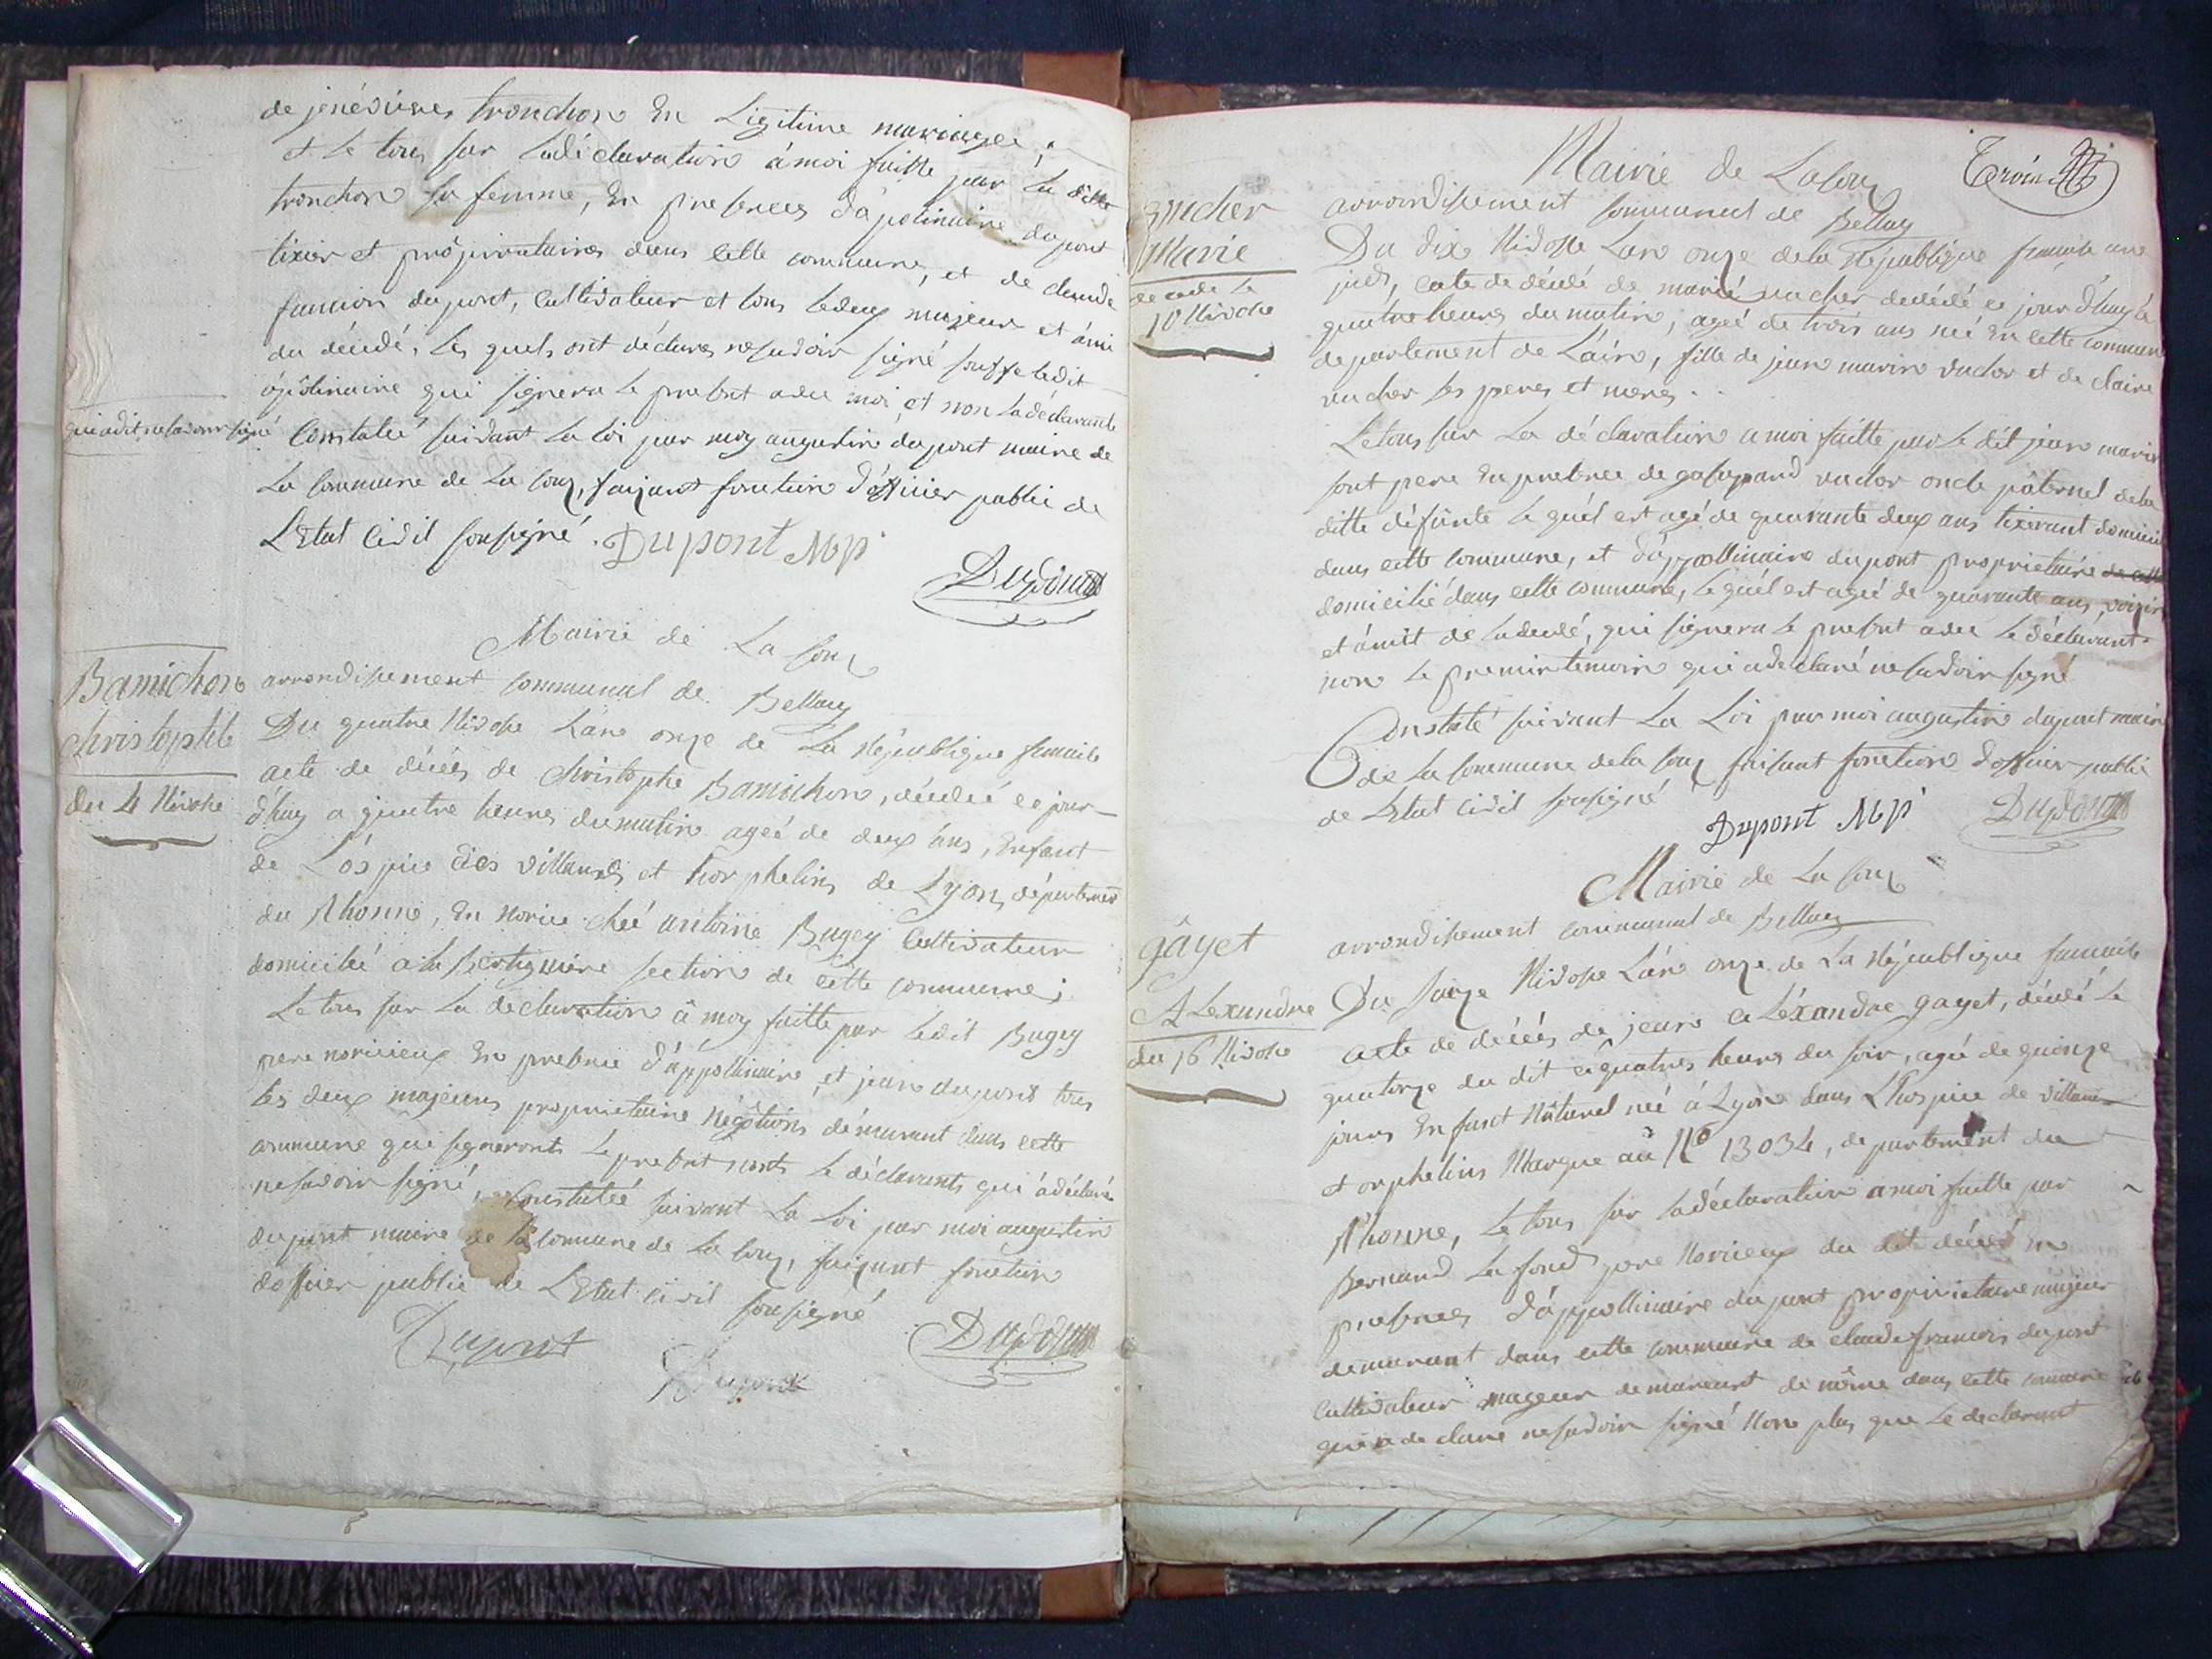 de jenévieves tronchon En Ligitime mariage,
et Le tous sur Ladéclaration à moi faitte par La ditte
tronchon sa femme, En presences d'apolinaire dupont
tixier et propirietaires dans cette commune, et de claude
françois dupont, Cultivateur et tous Ledeux majeur et ami
du décédé, Les quels ont déclarés nesavoir signé sauffe ledit
apolinaire qui signera Le present avec moi et non Ladéclarante
qui a dit ne savoir signé
Constateé suivant La Loi par moy augustin dupont maire de
La Commune de La Coux, faisant fonction d'officier public de
L'Etat Civil sousigné. Dupont Mp
Dupont
Mairie de La Coux
Bamichon
christophe
du 4 Nivose
arrondisement communal de Belley
Du quatre Nivose Lans onze de La République francaise
acte de décés de christophe Bamichon, décédé ce jour
d'huy a quatre heures dumatin ageé de deux ans, Enfant
de L'ospice des villands et horphelins de Lyon, département
du Rhonne, En norice cheé antoine Bugey Cultivateur
domicilié a la Bertignière section de cette commune;
Le tous sur La declaration â moy faitte par Ledit Bugey
pere noricieux En presence d'appollinaire, et jean dupont tous
les deux majeurs proprietaire négotians démurant dans cette
commune qui signeronts Le present sants Le déclarants qui à déclaré
nesavoir signé, Constateé suivant La Loi par moi augustin
dupont maire de la Comune de La Coux, faisant fonction
dofficier public de L'Etat civil sousigné
Dupont
Dupont
Dupont
Mairie de La Coux
vucher
Marie
decedé Le
10 Nivose
arrondisement communal de Belley
Du dix Nivose Lans onze dela République francaise
acte de décédé de marie vucher decédé ce jour d'huy à
quatre heures du matin, ageé de trois ans neé En cette commune
departement de L'ain, fille de jean marin vucher et de claire
vucher ses peres et meres.
Letous sur La déclaration a moi faitte par Le dit jean marin
sont pere En presence de vucher oncle pâternel dela
ditte défunte Le quel est agé de quarante deux ans tixerant domicilié
dans cette commune, et d'appollinaire dupont proprietaire
domicilié dans cette commune, Lequel est ageé de quarante ans, voisin
et amit de Ladecedé, qui signera Le present avec Le déclarant
non Le premier temoin qui a declaré ne savoir signé
Constaté suivant La Loi par moi augustin dupont maire
de La Commune dela Coux faisant fonction d'officier public
de L'Etat civil sousigné
Dupont Mp
Dupont
Mairie de La Coux
gâyet
ALexandre
du 16 Nivose
arrondisement communal de Belley
Du Saize Nivose L'an onze de La République francaise
acte de décés de jean aLéxandre gayet, décédé Le
quatorze du dit à quatres heures du soir, ageé de quinze
jours Enfant Nâturel neé à Lyon dans L'hospice de villands
et orphelins Marque au No 13034, departement du
Rhonne, Le tous sur Ladéclaration a moi faitte par
Bernard La fond pere Noricieux du dit décédé En
presences d'appollinaire dupont propirietaire majeur
demurant dans cette commune de claude francois dupont
Cultivateur mageur demurant de même dans cette commune
qui a declaré nesavoir signé Non plus que Le declarant